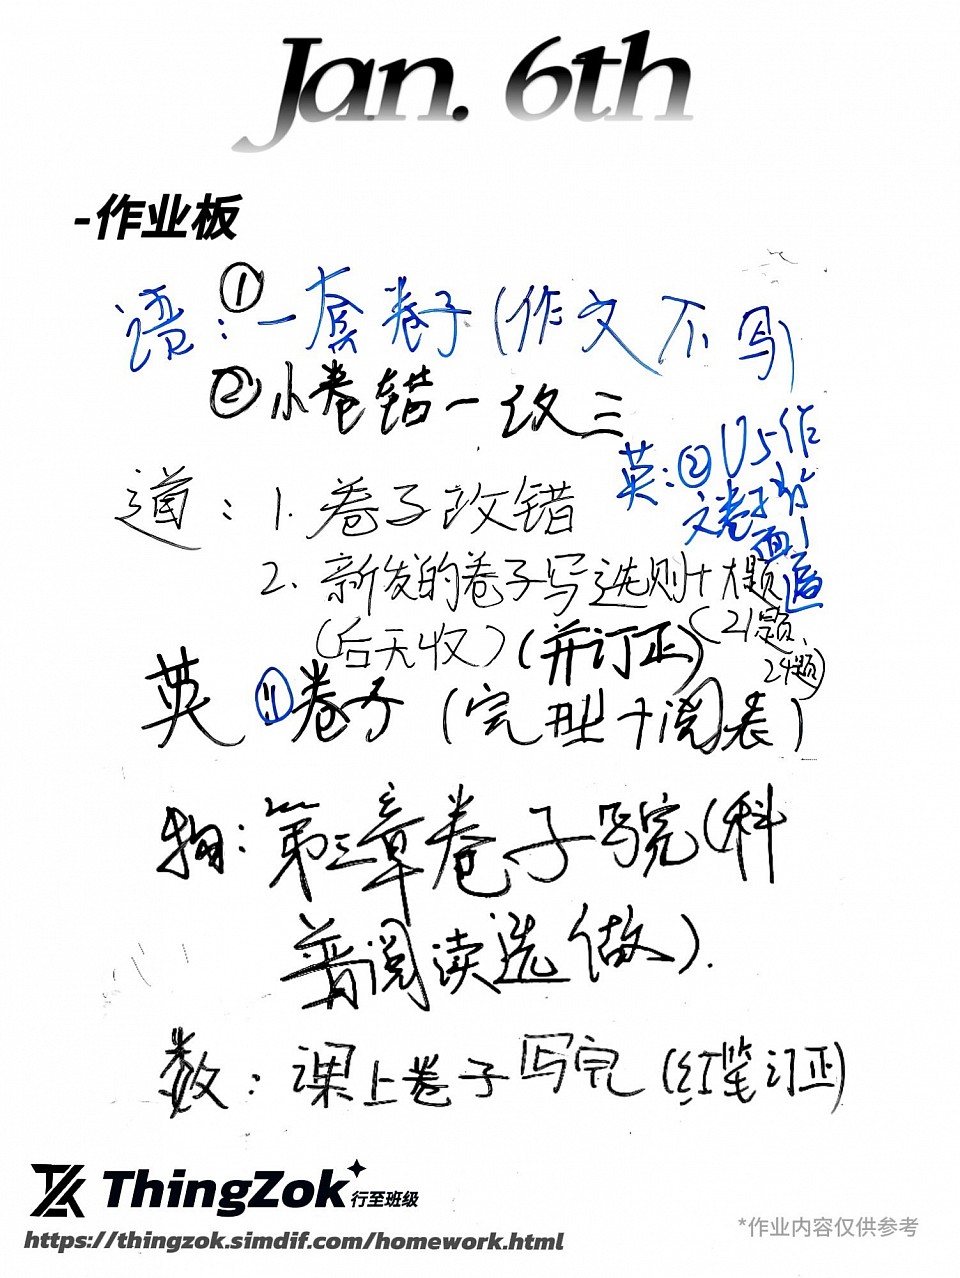 Jan. 6th
-作业板
语：①一套卷子(作文不写)
②小卷错一改三
英：②U5作
文卷子
面1
遍
道：1. 卷子改错
2. 新发的卷子写选则+大题
(21题、
24题)
(后天收)(并订正)
英 ①：卷子(完型+阅表)
物：第三章卷子写完(科
普阅读选做).
数：课上卷子写完(红笔订正)
ThingZok
行至班级
https://thingzok.simdif.com/homework.html
*作业内容仅供参考